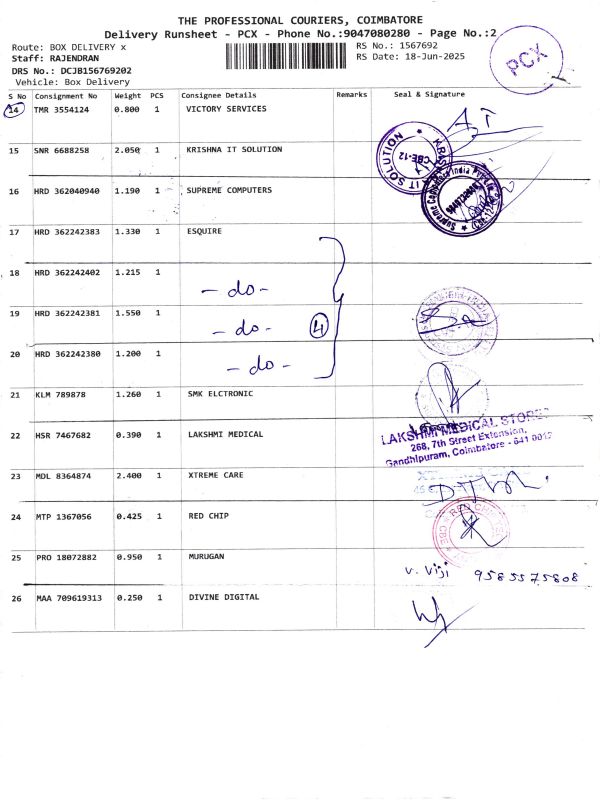 THE PROFESSIONAL COURIERS, COIMBATORE
Delivery Runsheet - PCX - Phone No.:9047080280 - Page No.:2
PCX
Route: BOX DELIVERY x
RS No.: 1567692
Staff: RAJENDRAN
RS Date: 18-Jun-2025
DRS No.: DCJB156769202
Vehicle: Box Delivery
S No Consignment No Weight PCS Consignee Details Remarks Seal & Signature
14 TMR 3554124 0.800 1 VICTORY SERVICES
15 SNR 6688258 2.050 1 KRISHNA IT SOLUTION
IT SOLUTION
CBE-12
16 HRD 362040940 1.190 1 SUPREME COMPUTERS
17 HRD 362242383 1.330 1 ESQUIRE
18 HRD 362242402 1.215 1 - do -
19 HRD 362242381 1.550 1 - do - 4
20 HRD 362242380 1.200 1 - do -
21 KLM 789878 1.260 1 SMK ELCTRONIC
22 HSR 7467682 0.390 1 LAKSHMI MEDICAL
LAKSHMI MEDICAL STORES
268, 7th Street Extension,
Gandhipuram, Coimbatore - 641 0012
23 MDL 8364874 2.400 1 XTREME CARE
24 MTP 1367056 0.425 1 RED CHIP
25 PRO 18072882 0.950 1 MURUGAN
v. viji 9585575808
26 MAA 709619313 0.250 1 DIVINE DIGITAL